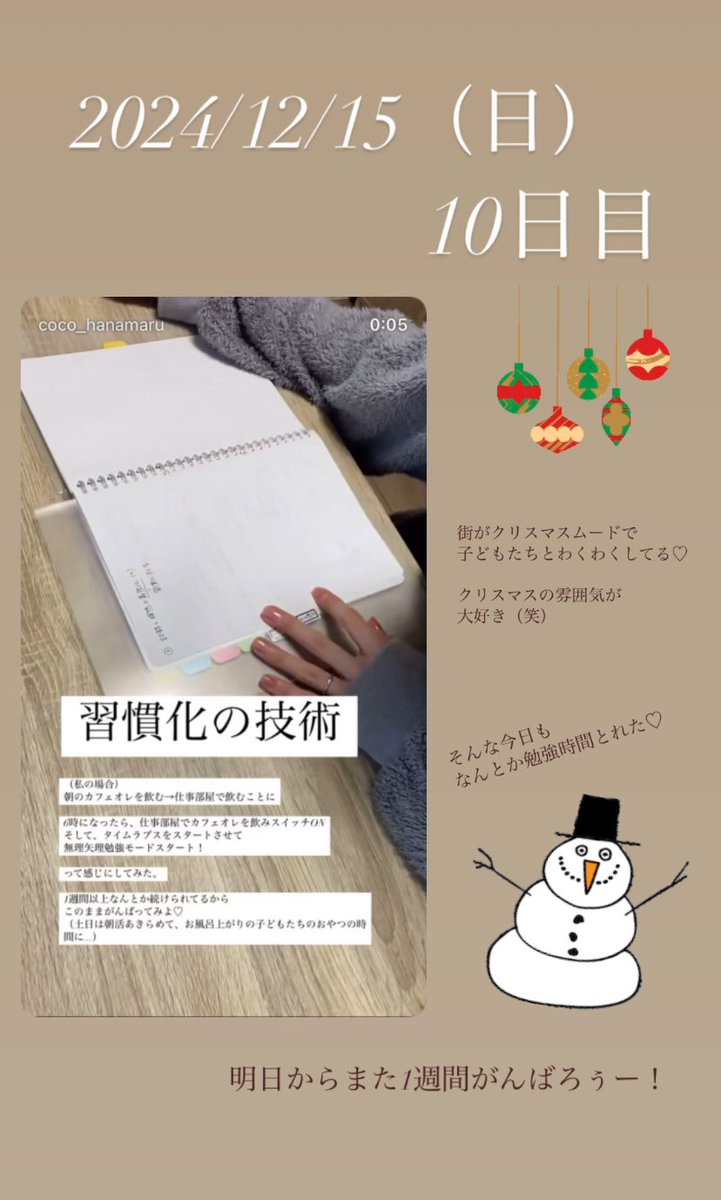 2024/12/15（日）
10日目
coco_hanamaru
0:05
街がクリスマスムードで
子どもたちとわくわくしてる♡
クリスマスの雰囲気が
大好き（笑）
習慣化の技術
（私の場合）
朝のカフェオレを飲む→仕事部屋で飲むことに
6時になったら、仕事部屋でカフェオレを飲みスイッチON
そして、タイムラプスをスタートさせて
無理矢理勉強モードスタート！
って感じにしてみた。
1週間以上なんとか続けられてるから
このままがんばってみよ♡
（土日は朝活あきらめて、お風呂上がりの子どもたちのおやつの時
間に...）
そんな今日も
なんとか勉強時間とれた♡
明日からまた1週間がんばろぅー！